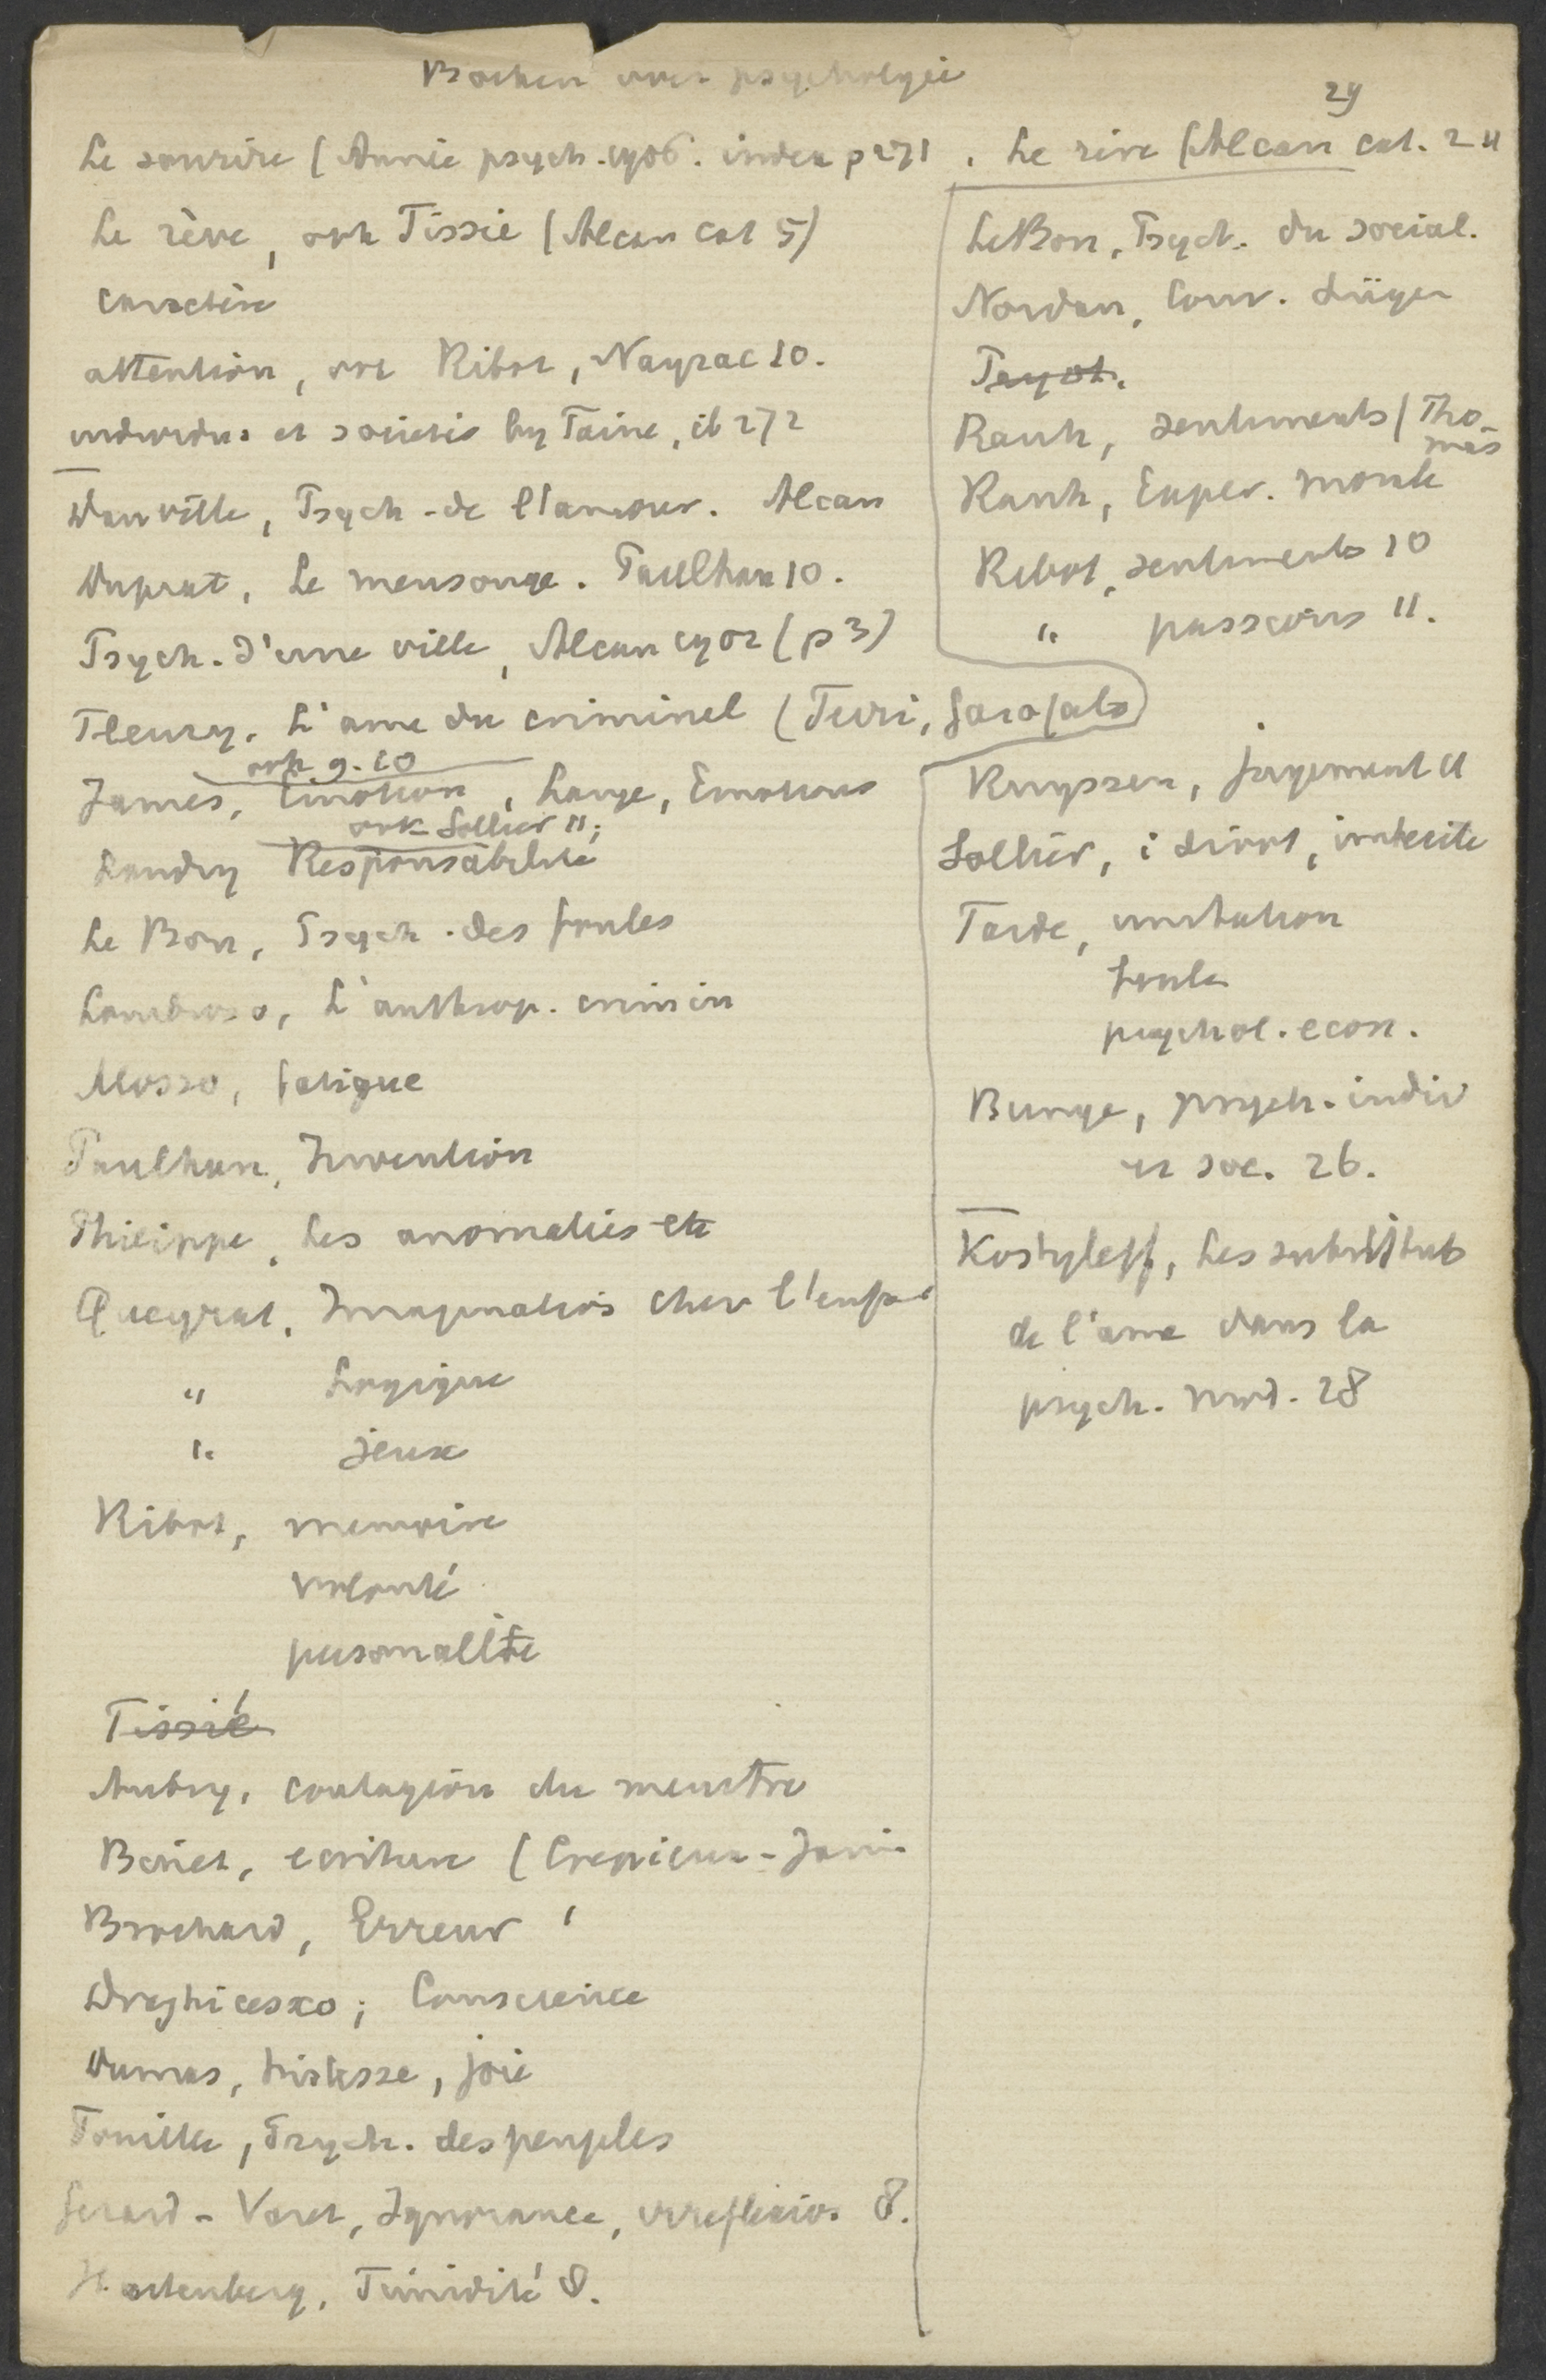 Boeken over psychologie
29
Le sourire (Année psych. 1906. index p 271
Le rève, ook Tissié (Alcan cat 5)
caractère
attention, ook Ribot, Nayrac 10.
individus et societés by Taine, ib 272
Danville, Psych. de l'amour. Alcan
Duprat, Le mensonge. Paulhan 10.
Psych. d'une ville, Alcan 1902 (p 3)
Fleury, L'ame du criminel (Ferri, Garofalo)
ook 9.10
James, Emotion, Lange, Emotions
ook Sollier 11;
Landry Responsabilité
Le Bon, Psych. des foules
Lombroso, L'anthrop. crimin
Mosso, fatigue
Paulhan, Invention
Philippe, Les anomalies etc
Queyrat, Imagination chez l'enfant
" Logique
" jeux
Ribot, memoire
volonté
personalité
Tissié
Aubry, contagion du meurtre
Binet, ecriture (Crepieux-Jamin
Brochard, Erreur
Draghicesco; Conscience
Dumas, tristesse, joie
Fouillée, Psych. des peuples
Gerard-Varet, Ignorance, irreflexion 8.
Hartenberg, Timidité 8.
Le rève (Alcan cat. 24
LeBon, Psych. du social.
Nordau, Conv. Lügen
Payot.
Rauh, sentiments / Tho-
mas
Rauh, Exper. morale
Ribot, sentiments 10
" passions 11.
Ruyssen, jugement 11
Sollier, idiot, imbecile
Tarde, imitation
foule
psychol. econ.
Bunge, psych. indiv
et soc. 26.
Kostyleff, Les substituts
de l'ame dans la
psych. mod. 28